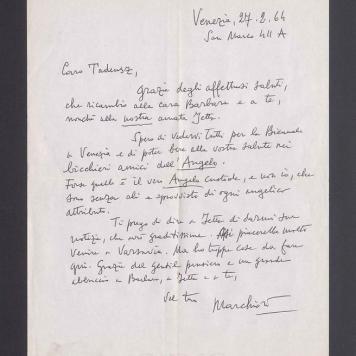 Venezia, 27.2.64
San Marco 411 A
Caro Tadeusz,
Grazie degli affettuosi saluti,
che ricambio alla cara Barbara e a te,
nonché alla nostra amata Jette.
Spero di vedervi tutti per la Biennale
a Venezia e di poter bere alla vostra salute nei
bicchieri amici dell'Angelo.
Forse quello è il vero Angelo custode, e non io, che
sono senza ali e sprovvisto di ogni angelico
attributo.
Ti prego di dire a Jette di darmi sue
notizie, che mi graditissime. Mi piacerebbe molto
venire a Varsavia. Ma ho troppe cose da fare
qui. Grazie del gentil pensiero e un grande
abbraccio a Barbara, a Jette e a te,
del tuo
Marchiori